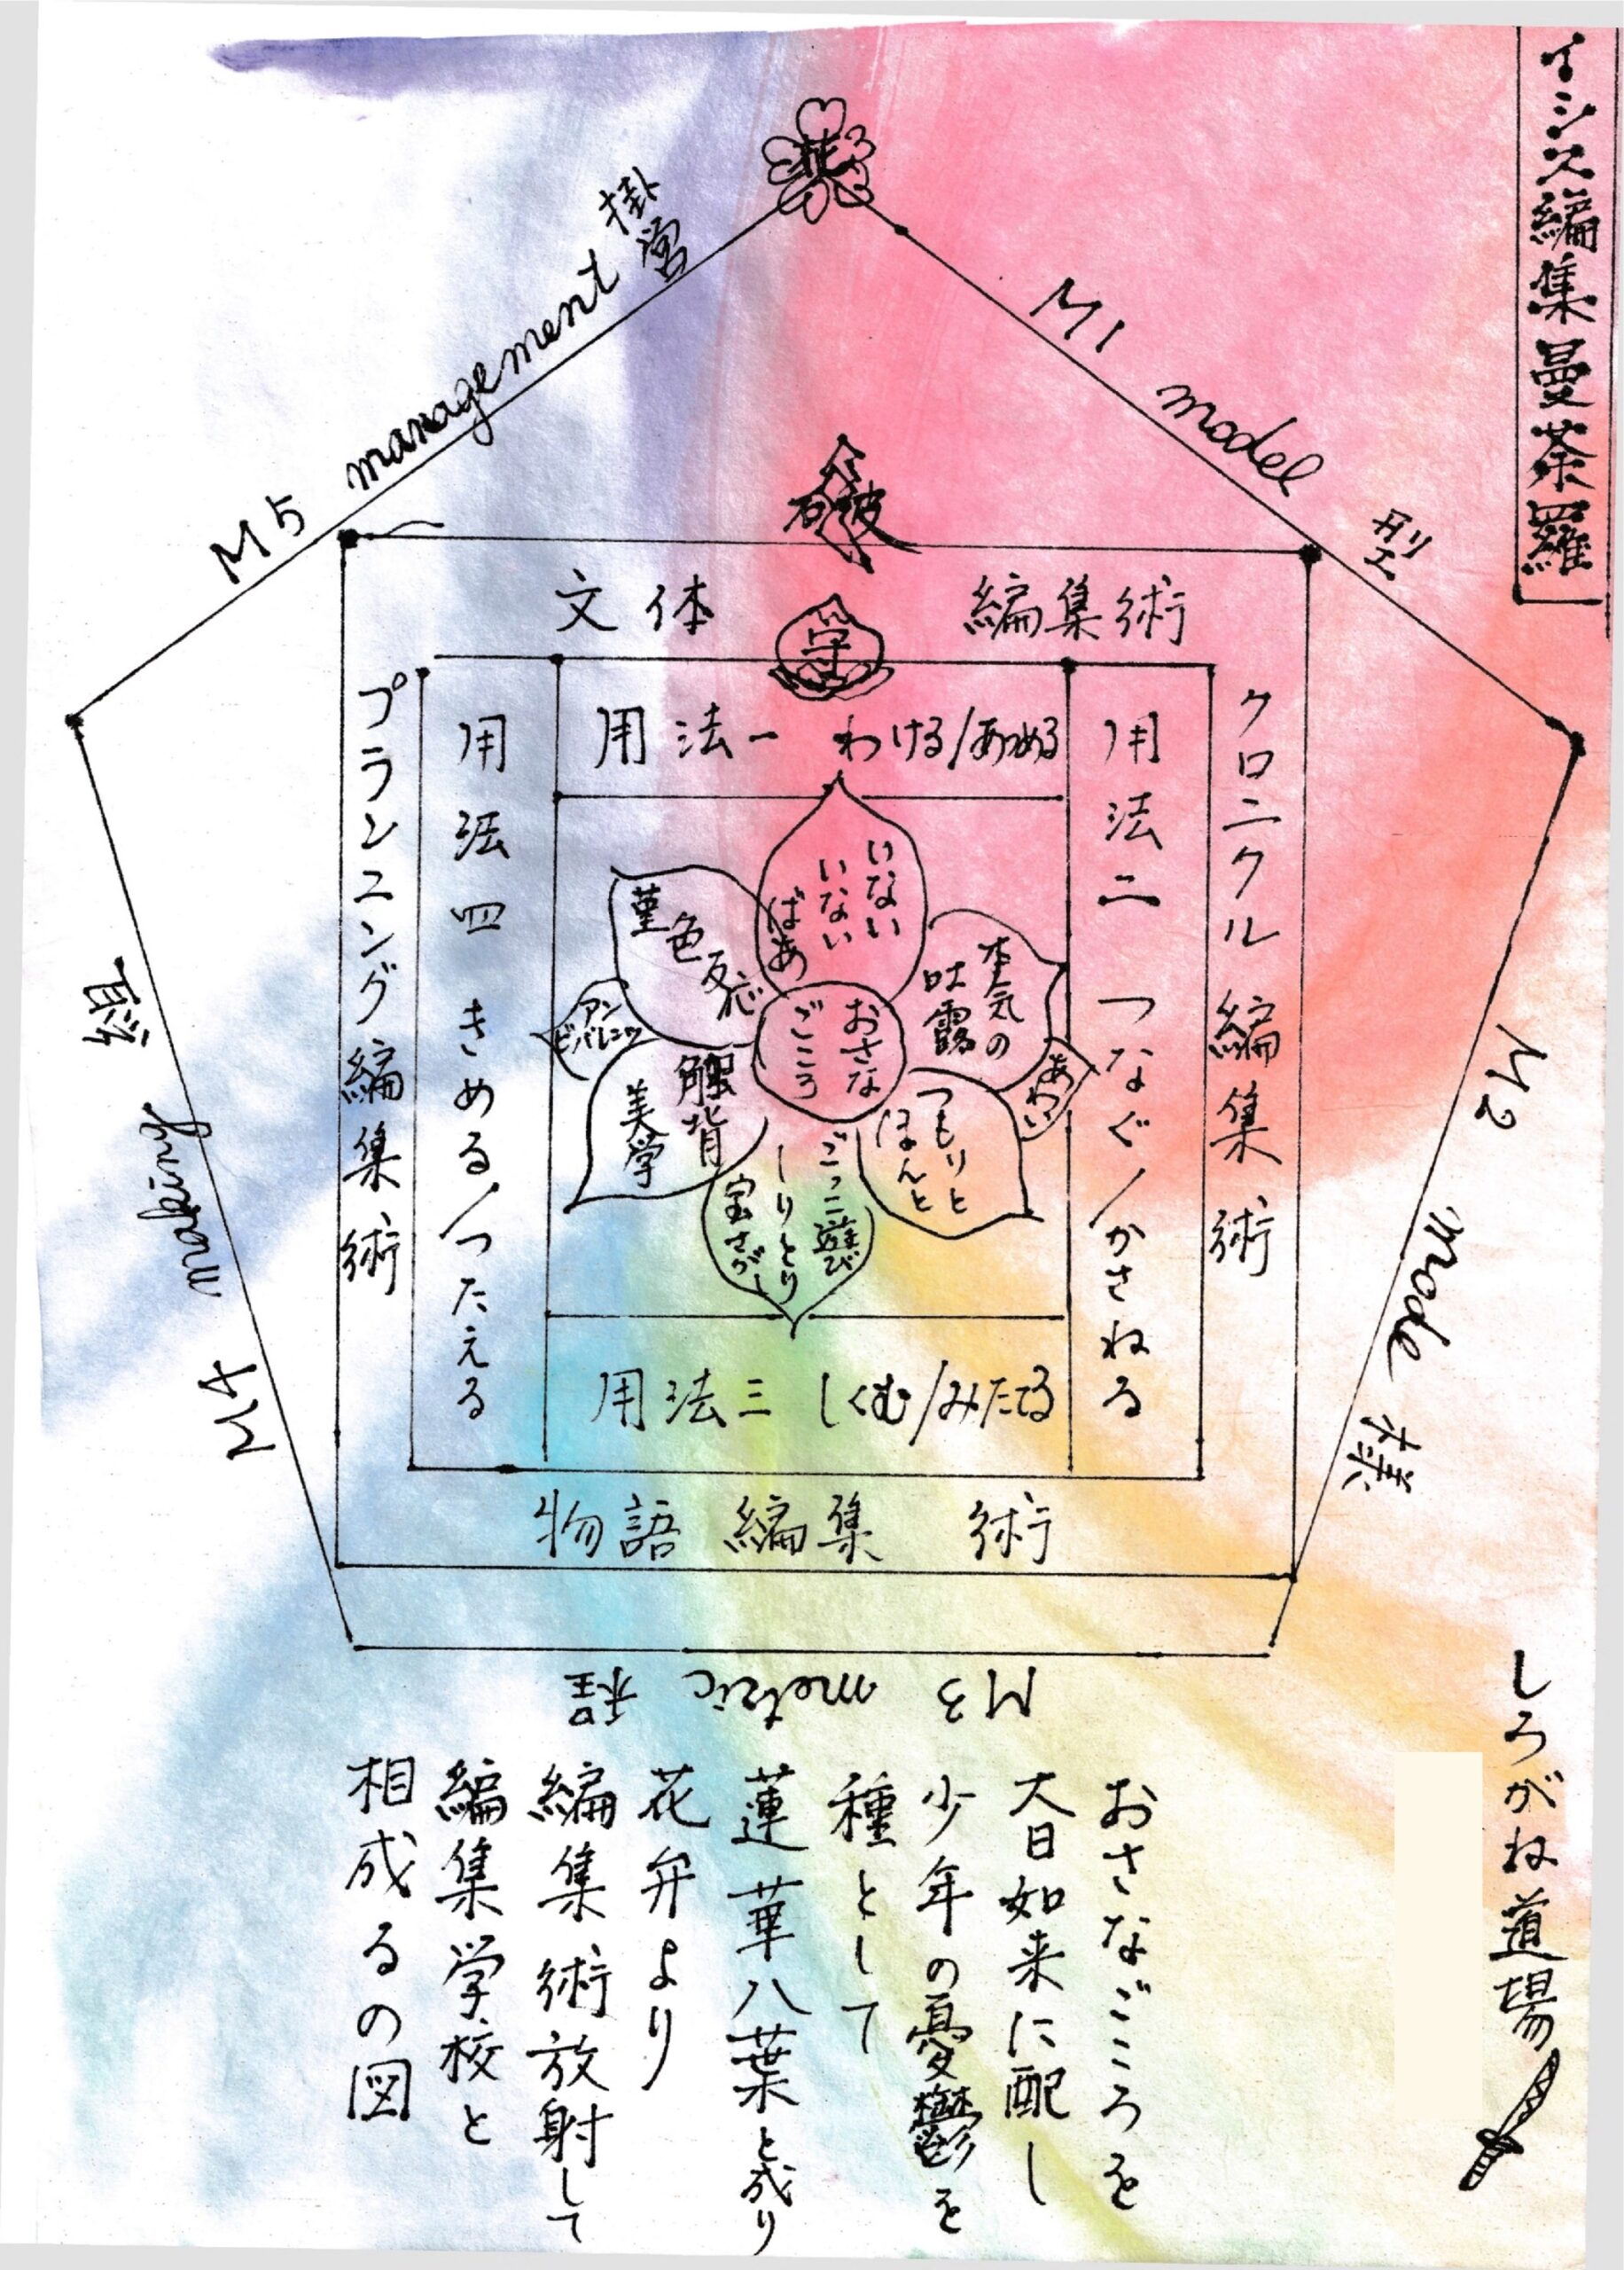 イシス編集曼荼羅
花
M1 model 型
M2 mode 様
M3 metric 程
M4 making
M5 management 掛営
破
文体 編集術
クロニクル編集術
物語編集術
プランニング編集術
守
用法一 わける/あつめる
用法二 つなぐ/かさねる
用法三 しくむ/みたてる
用法四 きめる/つたえる
いない
いない
ばあ
本気の
吐露
あわい
つもりと
ほんと
ごっこ遊び
しりとり
宝さがし
触背
美学
アン
ビバレンツ
菫色反応
おさな
ごころ
おさなごころを
大日如来に配し
少年の憂鬱を
種として
蓮華八葉と成り
花弁より
編集術放射して
編集学校と
相成るの図
しろがね道場